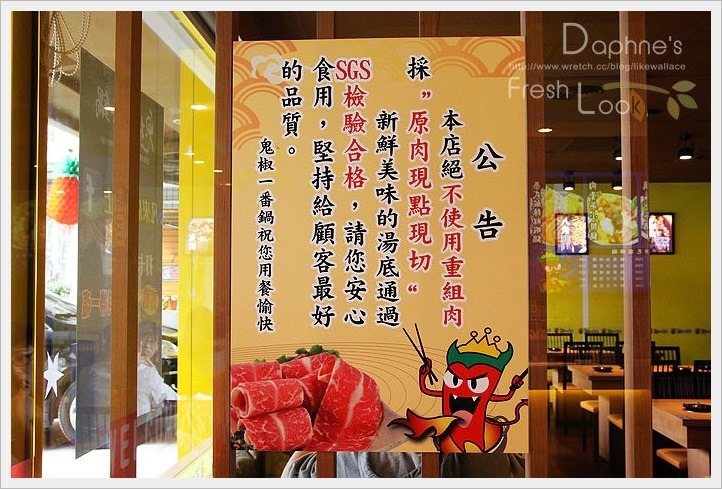 Daphne's
http://www.wretch.cc/blog/likewallace
Fresh Look
公告
本店絕不使用重組肉
採"原肉現點現切"
新鮮美味的湯底通過
SGS檢驗合格,請您安心
食用,堅持給顧客最好
的品質。
鬼椒一番鍋祝您用餐愉快